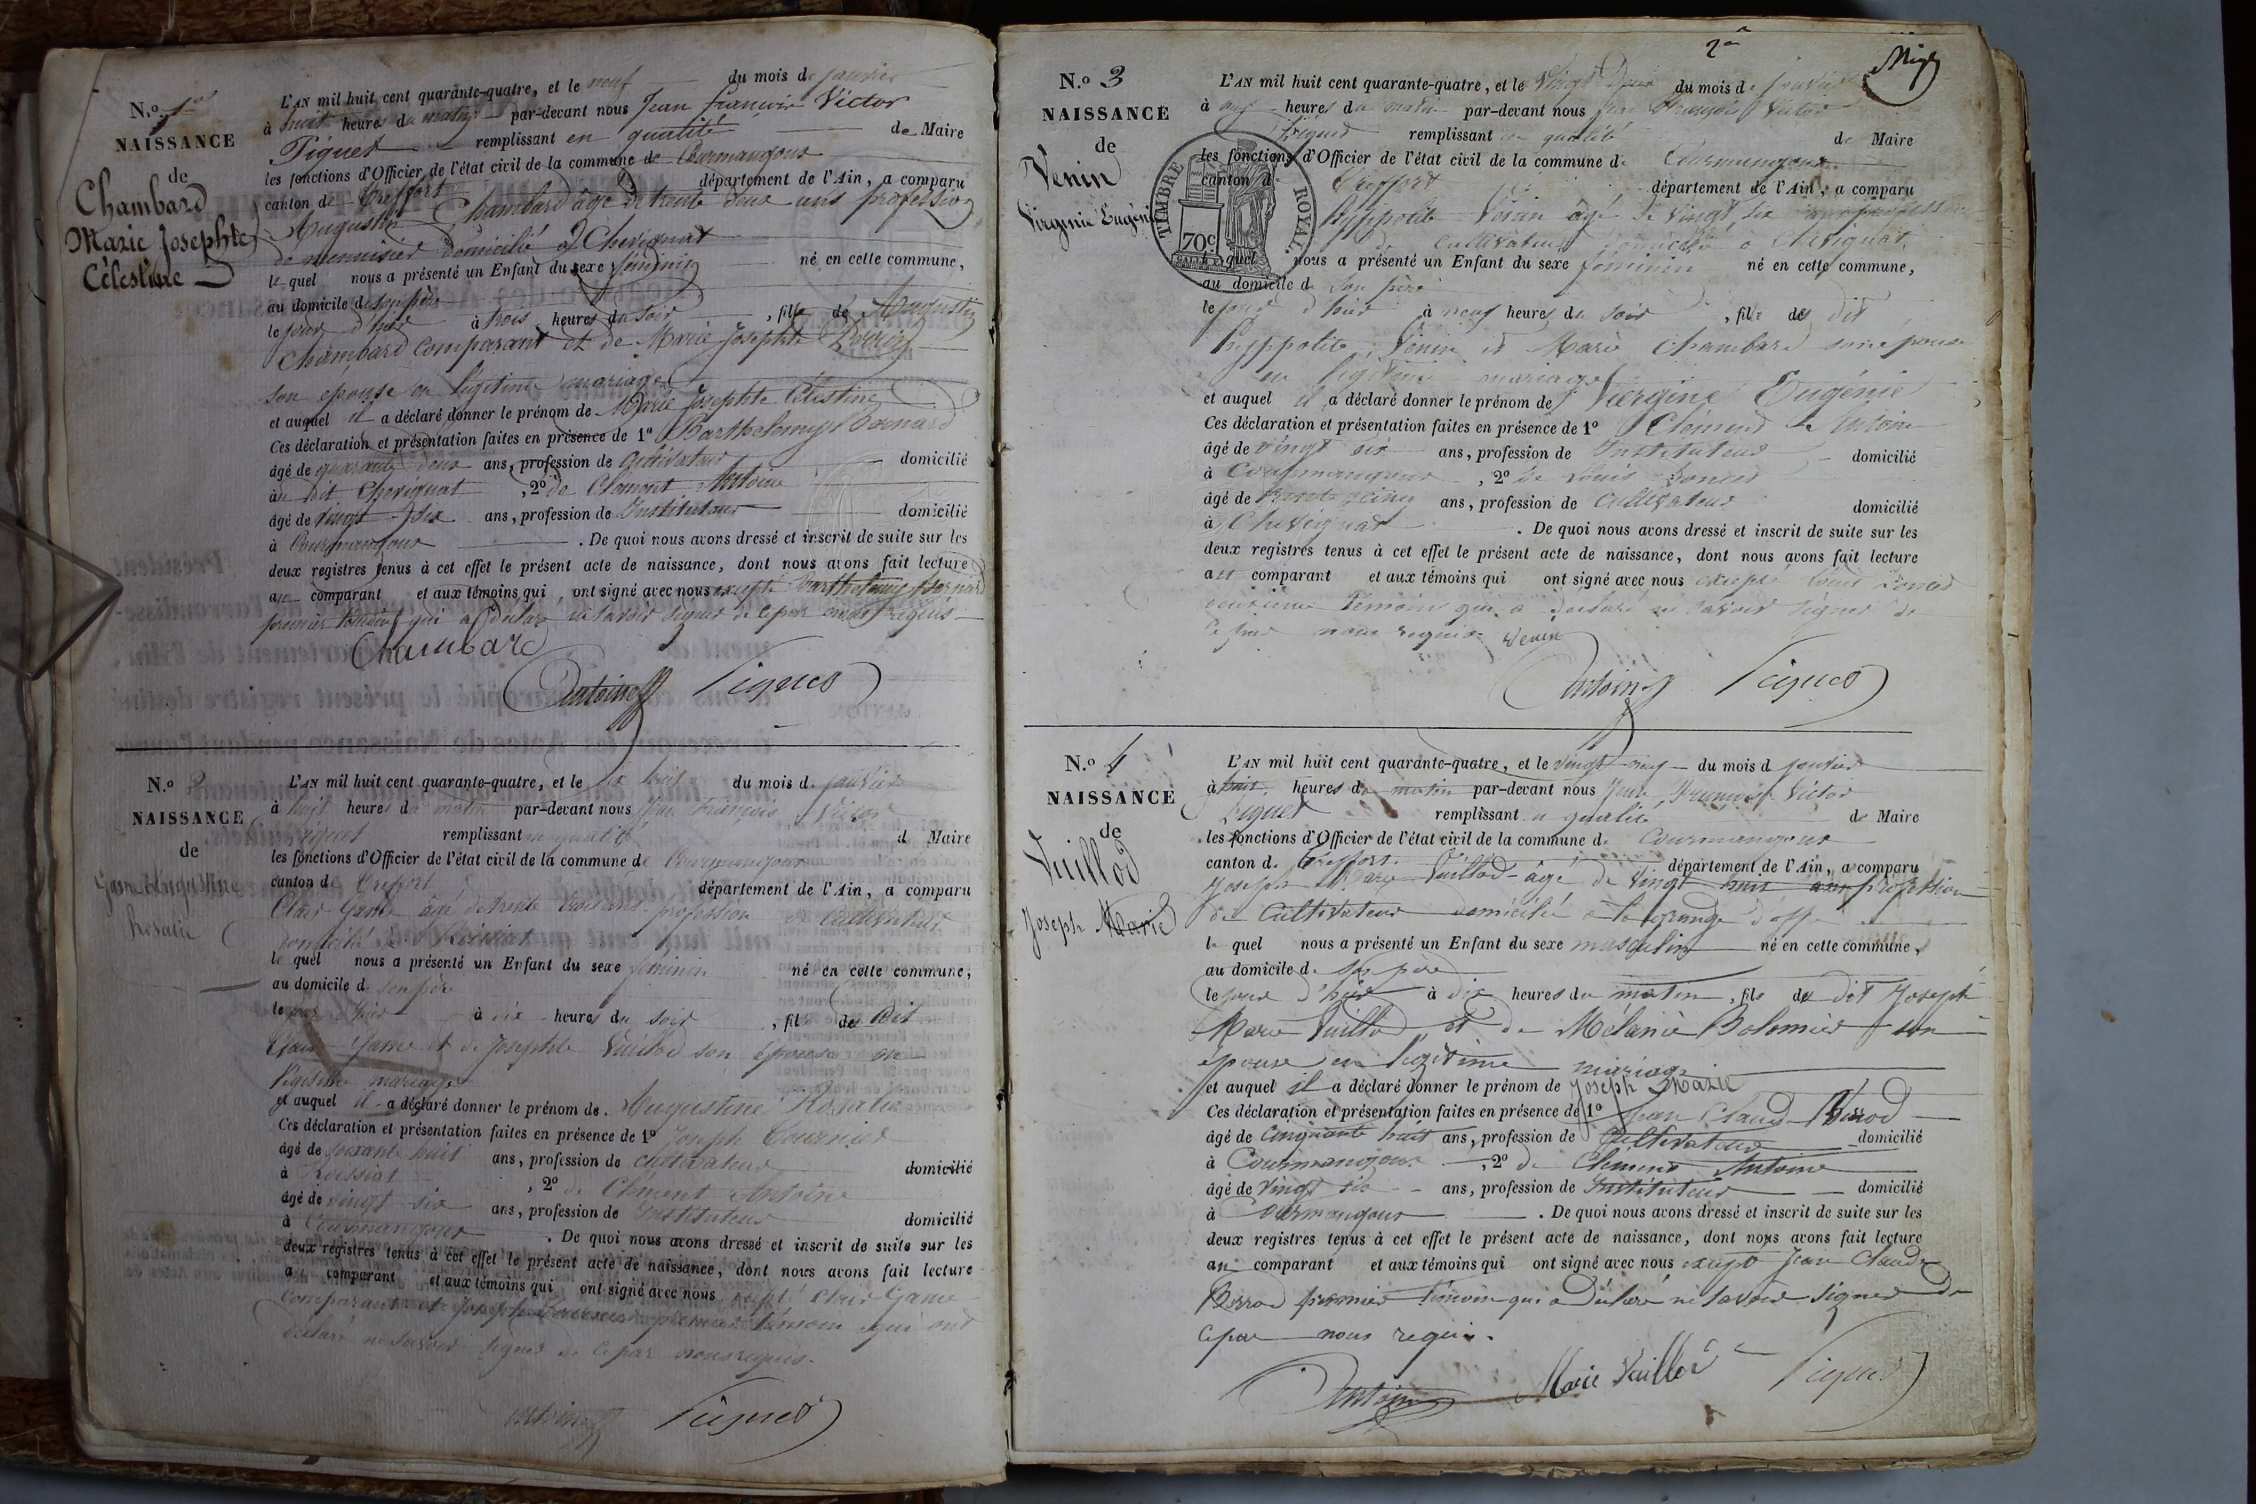 N.o 1er
NAISSANCE
de
Chambard
Marie Josephte
Célestine
L'AN mil huit cent quarante-quatre, et le neuf du mois de janvier
à huit heures du matin par-devant nous Jean François Victor
Piquet remplissant en qualité de Maire
les fonctions d'Officier de l'état civil de la commune de Courmangoux
canton de Treffort département de l'Ain, a comparu
Augustin Chambard âgé de trente deux ans profession
de menuisier domicilié à Chevignat
le quel nous a présenté un Enfant du sexe féminin né en cette commune,
au domicile de son père
le jour d'hier à trois heures du soir, fille de Augustin
Chambard comparant et de Marie Josephte
son épouse en légitime mariage
et auquel il a déclaré donner le prénom de Marie Josephte Célestine
Ces déclaration et présentation faites en présence de 1º Barthelemy Bernard
âgé de quarante deux ans, profession de Cultivateur domicilié
à dit Chevignat, 2º de Clément Antoine
âgé de vingt six ans, profession de Instituteur domicilié
à Courmangoux. De quoi nous avons dressé et inscrit de suite sur les
deux registres tenus à cet effet le présent acte de naissance, dont nous avons fait lecture
au comparant et aux témoins qui ont signé avec nous excepté Barthelemy Bernard
premier témoin qui a déclaré ne savoir signer de ce par nous requis
Chambard
Antoine Piquet
N.o 2
NAISSANCE
de
Game Augustine
Rosalie
L'AN mil huit cent quarante-quatre, et le dix huit du mois de janvier
à huit heures du matin par-devant nous Jean François Victor
Piquet remplissant en qualité d Maire
les fonctions d'Officier de l'état civil de la commune de Courmangoux
canton de Treffort département de l'Ain, a comparu
Clair Game âgé de trente trois ans profession de cultivateur
domicilié à Roissiat
le quel nous a présenté un Enfant du sexe féminin né en cette commune,
au domicile de son père
le jour d'hier à dix heures du soir, fille de dit
Clair Game et de Josephte Vuillod son épouse en
légitime mariage
et auquel il a déclaré donner le prénom de Augustine Rosalie
Ces déclaration et présentation faites en présence de 1º Joseph
âgé de soixante huit ans, profession de cultivateur domicilié
à Roissiat, 2º de Clément Antoine
âgé de vingt six ans, profession de Instituteur domicilié
à Courmangoux. De quoi nous avons dressé et inscrit de suite sur les
deux registres tenus à cet effet le présent acte de naissance, dont nous avons fait lecture
a comparant et aux témoins qui ont signé avec nous excepté Clair Game
comparant et Joseph premier témoin qui ont
déclaré ne savoir signer de ce par nous requis.
Antoine Piquet
2e
N.o 3
NAISSANCE
de
Venin
Virginie Eugénie
TIMBRE ROYAL
70c
L'AN mil huit cent quarante-quatre, et le vingt deux du mois de janvier
à neuf heures du matin par-devant nous Jean François Victor
Piquet remplissant en qualité de Maire
les fonctions d'Officier de l'état civil de la commune de Courmangoux
canton de Treffort département de l'Ain, a comparu
Hyppolite Venin âgé de vingt six ans profession
de cultivateur domicilié à Chevignat
le quel nous a présenté un Enfant du sexe féminin né en cette commune,
au domicile de son père
le jour d'hier à neuf heures du soir, fille de dit
Hyppolite Venin et Marie Chambard son épouse
en légitime mariage
et auquel il a déclaré donner le prénom de Viergine Eugénie
Ces déclaration et présentation faites en présence de 1º Clément Antoine
âgé de vingt six ans, profession de Instituteur domicilié
à Courmangoux, 2º de Louis
âgé de trente cinq ans, profession de cultivateur domicilié
à Chevignat. De quoi nous avons dressé et inscrit de suite sur les
deux registres tenus à cet effet le présent acte de naissance, dont nous avons fait lecture
au comparant et aux témoins qui ont signé avec nous excepté Louis
deuxième témoin qui a déclaré ne savoir signer de
ce par nous requis Venin
Antoine Piquet
N.o 4
NAISSANCE
de
Vuillod
Joseph Marie
L'AN mil huit cent quarante-quatre, et le vingt neuf du mois d janvier
à huit heures du matin par-devant nous Jean François Victor
Piquet remplissant en qualité de Maire
les fonctions d'Officier de l'état civil de la commune de Courmangoux
canton de Treffort département de l'Ain, a comparu
Joseph Marie Vuillod âgé de vingt huit ans profession
de cultivateur domicilié à la grange
le quel nous a présenté un Enfant du sexe masculin né en cette commune,
au domicile de son père
le jour d'hier à dix heures du matin, fils de dit Joseph
Marie Vuillod et de Mélanie Bolomier son
épouse en légitime mariage
et auquel il a déclaré donner le prénom de Joseph Marie
Ces déclaration et présentation faites en présence de 1º Jean Claude
âgé de cinquante huit ans, profession de Cultivateur domicilié
à Courmangoux, 2º de Clément Antoine
âgé de vingt six ans, profession de Instituteur domicilié
à Courmangoux. De quoi nous avons dressé et inscrit de suite sur les
deux registres tenus à cet effet le présent acte de naissance, dont nous avons fait lecture
au comparant et aux témoins qui ont signé avec nous excepté Jean Claude
premier témoin qui a déclaré ne savoir signer de
ce par nous requis.
Antoine Marie Vuillod Piquet